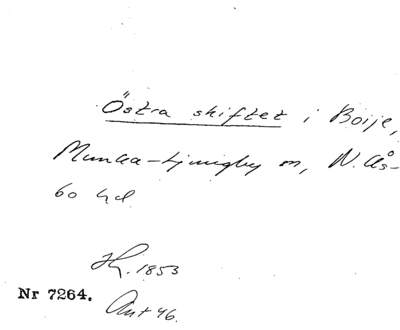 Östra skiftet i Böije,
Munka-Ljungby sn, N. Ås-
bo hd
Hy. 1853
Nr 7264.
Ant 46.